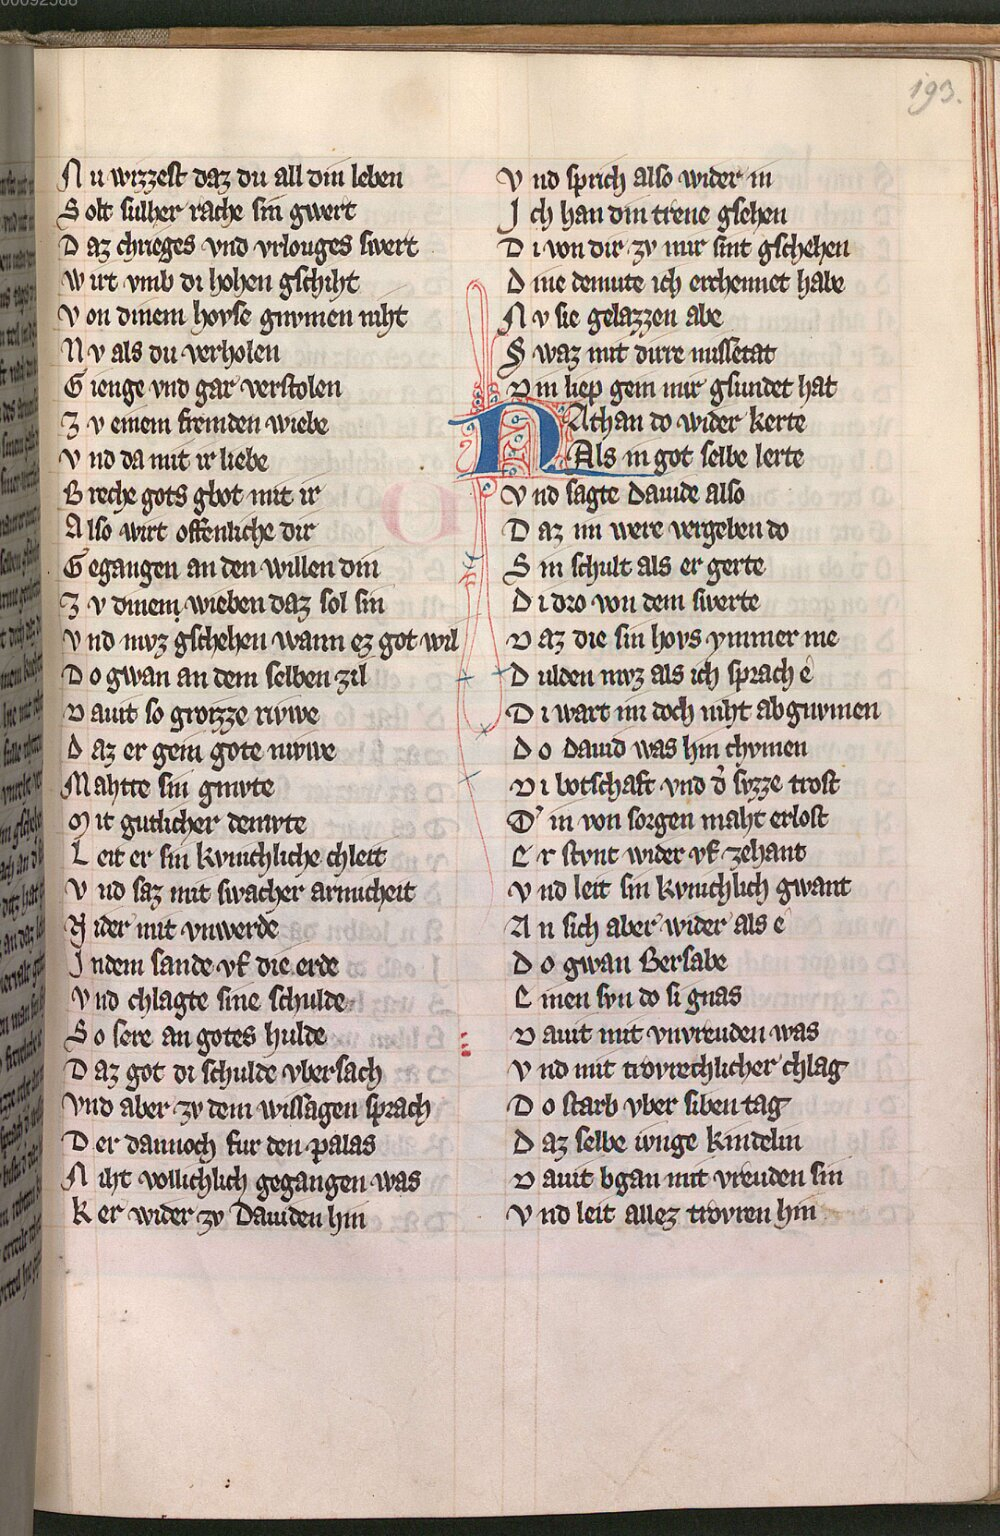 00092588
193.
Nu wizzest daz du all din leben
Solt sulher rache sin gwert
Daz chrieges vnd vrlouges swert
Wirt vmb di hohen gschiht
Von dinem hovse gnvmen niht
Nv als du verholen
Gienge vnd gar verstolen
Zv einem fremden wiebe
Vnd da mit ir liebe
Breche gots gbot mit ir
Also wirt offenliche dir
Gegangen an den willen din
Zv dinem wieben daz sol sin
Vnd mvz gschehen wann ez got wil
Do gwan an dem selben zil
Dauit so grozze rivwe
Daz er gein gote nivwe
Mahtte sin gmvte
Mit gutlicher demvte
Leit er sin kvnichliche chleit
Vnd saz mit swacher armicheit
Nider mit vnwerde
Indem sande vf die erde
Vnd chlagte sine schulde
So sere an gotes hulde
Daz got di schulde vbersach
Vnd aber zv dem wissagen sprach
Der dannoch fur den palas
Niht vollichlich gegangen was
Ker wider zv Dauiden hin
Vnd sprich also wider in
Ich han din trewe gsehen
Di von dir zv mir sint gschehen
Dine demute ich erchennet habe
Nv sie gelazzen abe
Swaz mit dirre missetat
Din liep gein mir gsundet hat
NAthan do wider kerte
Als in got selbe lerte
Vnd sagte Dauide also
Daz im were vergeben do
Sin schult als er gerte
Di dro von dem swerte
Daz die sin hovs ymmer me
Dulden mvz als ich sprach e
Di wart im doch niht abgnvmen
Do Dauid was hin chvmen
Di botschaft vnd d̾ svzze trost
D̾ in von sorgen maht erlost
Er stvnt wider vf zehant
Vnd leit sin kvnichlich gwant
An sich aber wider als e
Do gwan Bersabe
Einen svn do si gnas
Dauit mit vnvreuden was
Vnd mit trovrechlicher chlag
Do starb vber siben tag
Daz selbe ivnge kindelin
Dauit bgan mit vreuden sin
Vnd leit allez trovren hin